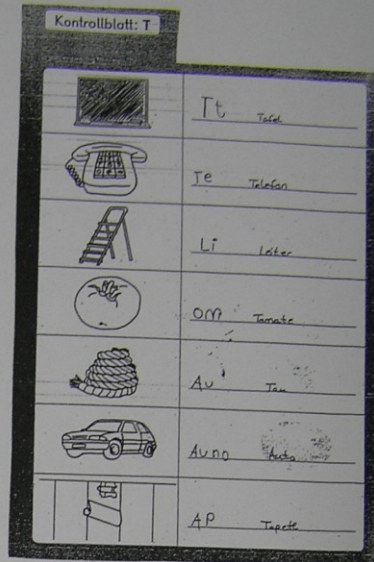 Kontrollblatt: T
Tt Tafel
Te Telefon
Li Leiter
om Tomate
Au Tau
Auno Auto
AP Tapete